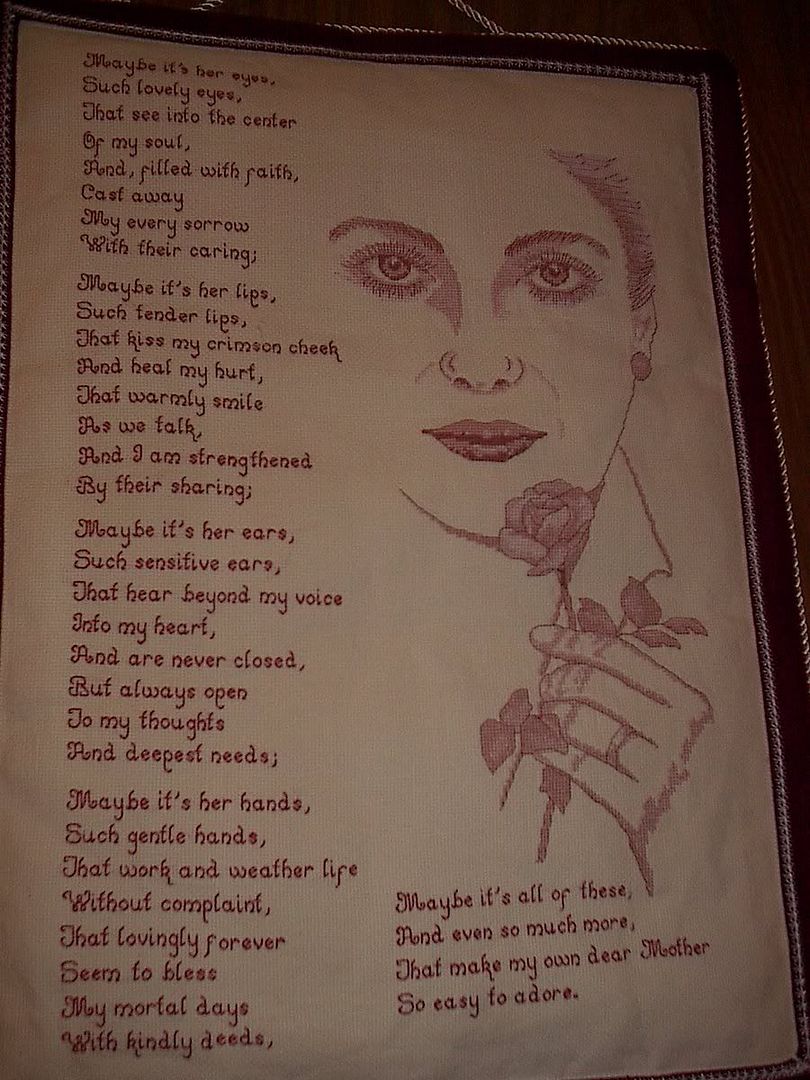 Maybe it's her eyes,
Such lovely eyes,
That see into the center
Of my soul,
And, filled with faith,
Cast away
My every sorrow
With their caring;
Maybe it's her lips,
Such tender lips,
That kiss my crimson cheek
And heal my hurt,
That warmly smile
As we talk,
And I am strengthened
By their sharing;
Maybe it's her ears,
Such sensitive ears,
That hear beyond my voice
Into my heart,
And are never closed,
But always open
To my thoughts
And deepest needs;
Maybe it's her hands,
Such gentle hands,
That work and weather life
Without complaint,
That lovingly forever
Seem to bless
My mortal days
With kindly deeds,
Maybe it's all of these,
And even so much more,
That make my own dear Mother
So easy to adore.